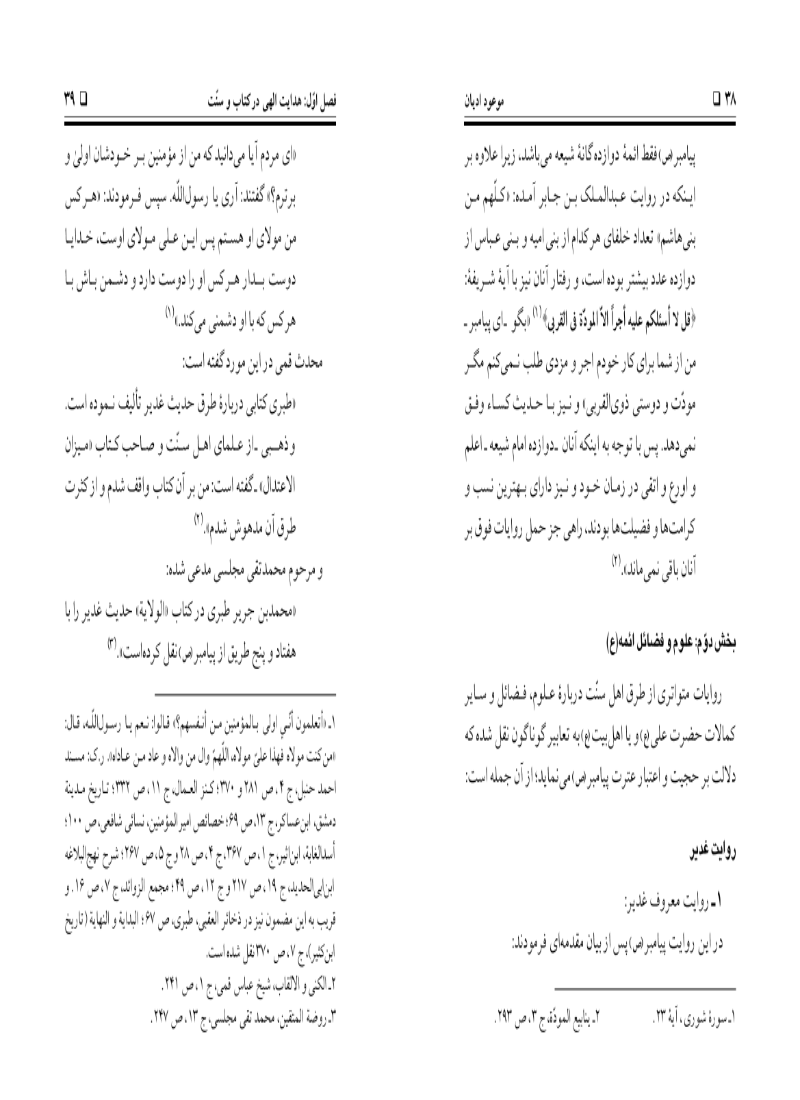 ۳۸ □ موعود ادیان
پیامبر(ص) فقط ائمهٔ دوازده‌گانهٔ شیعه می‌باشد، زیرا علاوه بر
اینکه در روایت عبدالملک بن جابر آمده: «کلّهم من
بنی‌هاشم» تعداد خلفای هر کدام از بنی امیه و بنی عباس از
دوازده عدد بیشتر بوده است، و رفتار آنان نیز با آیهٔ شریفهٔ:
﴿قل لا أسئلکم علیه أجراً الاّ المودّة فی القربی﴾(۱) «بگو ـ ای پیامبر ـ
من از شما برای کار خودم اجر و مزدی طلب نمی‌کنم مگر
مودّت و دوستی ذوی‌القربی» و نیز با حدیث کساء وفق
نمی‌دهد. پس با توجه به اینکه آنان ـ دوازده امام شیعه ـ اعلم
و اورع و اتقی در زمان خود و نیز دارای بهترین نسب و
کرامت‌ها و فضیلت‌ها بودند، راهی جز حمل روایات فوق بر
آنان باقی نمی‌ماند».(۲)
بخش دوّم: علوم و فضائل ائمه(ع)
روایات متواتری از طرق اهل سنّت دربارهٔ علوم، فضائل و سایر
کمالات حضرت علی(ع) و یا اهل‌بیت(ع) به تعابیر گوناگون نقل شده که
دلالت بر حجیت و اعتبار عترت پیامبر(ص) می‌نماید؛ از آن جمله است:
روایت غدیر
۱ـ روایت معروف غدیر:
در این روایت پیامبر(ص) پس از بیان مقدمه‌ای فرمودند:
۱ـ سورهٔ شوری، آیهٔ ۲۳. ۲ـ ینابیع المودّة، ج ۳، ص ۲۹۳.
فصل اوّل: هدایت الهی در کتاب و سنّت □ ۳۹
«ای مردم آیا می‌دانید که من از مؤمنین بر خودشان اولیٰ و
برترم؟» گفتند: آری یا رسول‌اللّه. سپس فرمودند: «هر کس
من مولای او هستم پس این علی مولای اوست، خدایا
دوست بدار هر کس او را دوست دارد و دشمن باش با
هر کس که با او دشمنی می‌کند.»(۱)
محدث قمی در این مورد گفته است:
«طبری کتابی دربارهٔ طرق حدیث غدیر تألیف نموده است.
و ذهبی ـ از علمای اهل سنّت و صاحب کتاب «میزان
الاعتدال» ـ گفته است: من بر آن کتاب واقف شدم و از کثرت
طرق آن مدهوش شدم».(۲)
و مرحوم محمدتقی مجلسی مدعی شده:
«محمدبن جریر طبری در کتاب «الولایة» حدیث غدیر را با
هفتاد و پنج طریق از پیامبر(ص) نقل کرده‌است».(۳)
۱ـ «أتعلمون أنّي اولی بالمؤمنین من أنفسهم؟» قالوا: نعم یا رسول‌اللّه، قال:
«من کنت مولاه فهذا علیّ مولاه، اللّهمّ وال من والاه و عاد من عاداه». ر.ک: مسند
احمد حنبل، ج ۴، ص ۲۸۱ و ۳۷۰؛ کنز العمال، ج ۱۱، ص ۳۳۲؛ تاریخ مدینة
دمشق، ابن‌عساکر، ج ۱۳، ص ۶۹؛ خصائص امیرالمؤمنین، نسائی شافعی، ص ۱۰۰؛
أسدالغابة، ابن‌اثیر، ج ۱، ص ۳۶۷، ج ۴، ص ۲۸ و ج ۵، ص ۲۶۷؛ شرح نهج‌البلاغه
ابن‌ابی‌الحدید، ج ۱۹، ص ۲۱۷ و ج ۱۲، ص ۴۹؛ مجمع الزوائد، ج ۷، ص ۱۶. و
قریب به این مضمون نیز در ذخائر العقبی، طبری، ص ۶۷؛ البدایة و النهایة (تاریخ
ابن‌کثیر)، ج ۷، ص ۳۷۰ نقل شده است.
۲ـ الکنی و الالقاب، شیخ عباس قمی، ج ۱، ص ۲۴۱.
۳ـ روضة المتقین، محمد تقی مجلسی، ج ۱۳، ص ۲۴۷.